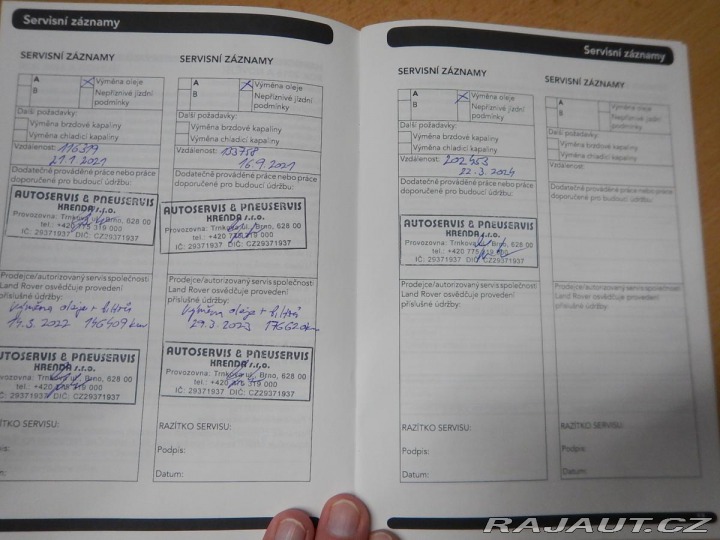 Servisní záznamy
SERVISNÍ ZÁZNAMY
A
B
Výměna oleje
Nepříznivé jízdní
podmínky
Další požadavky:
Výměna brzdové kapaliny
Výměna chladicí kapaliny
Vzdálenost: 116319
21.1 2021
Dodatečně prováděné práce nebo práce
doporučené pro budoucí údržbu:
AUTOSERVIS & PNEUSERVIS
KRENDA s.r.o.
Provozovna: Trnkova ul., Brno, 628 00
tel.: +420 775 319 000
IČ: 29371937 DIČ: CZ29371937
Prodejce/autorizovaný servis společnosti
Land Rover osvědčuje provedení
příslušné údržby:
Výměna oleje + filtrů
14.3.2022 146409 km
AUTOSERVIS & PNEUSERVIS
KRENDA s.r.o.
Provozovna: Trnkova ul., Brno, 628 00
tel.: +420 775 319 000
IČ: 29371937 DIČ: CZ29371937
RAZÍTKO SERVISU:
Podpis:
Datum:
SERVISNÍ ZÁZNAMY
A
B
Výměna oleje
Nepříznivé jízdní
podmínky
Další požadavky:
Výměna brzdové kapaliny
Výměna chladicí kapaliny
Vzdálenost: 133758
16.9.2021
Dodatečně prováděné práce nebo práce
doporučené pro budoucí údržbu:
AUTOSERVIS & PNEUSERVIS
KRENDA s.r.o.
Provozovna: Trnkova ul., Brno, 628 00
tel.: +420 775 319 000
IČ: 29371937 DIČ: CZ29371937
Prodejce/autorizovaný servis společnosti
Land Rover osvědčuje provedení
příslušné údržby:
Výměna oleje + filtrů
29.3.2023 176620km
AUTOSERVIS & PNEUSERVIS
KRENDA s.r.o.
Provozovna: Trnkova ul., Brno, 628 00
tel.: +420 775 319 000
IČ: 29371937 DIČ: CZ29371937
RAZÍTKO SERVISU:
Podpis:
Datum:
Servisní záznamy
SERVISNÍ ZÁZNAMY
A
B
Výměna oleje
Nepříznivé jízdní
podmínky
Další požadavky:
Výměna brzdové kapaliny
Výměna chladicí kapaliny
Vzdálenost: 202453
22.3.2024
Dodatečně prováděné práce nebo práce
doporučené pro budoucí údržbu:
AUTOSERVIS & PNEUSERVIS
KRENDA s.r.o.
Provozovna: Trnkova ul., Brno, 628 00
tel.: +420 775 319 000
IČ: 29371937 DIČ: CZ29371937
Prodejce/autorizovaný servis společnosti
Land Rover osvědčuje provedení
příslušné údržby:
RAZÍTKO SERVISU:
Podpis:
Datum:
SERVISNÍ ZÁZNAMY
A
B
Výměna oleje
Nepříznivé jízdní
podmínky
Další požadavky:
Výměna brzdové kapaliny
Výměna chladicí kapaliny
Vzdálenost:
Dodatečně prováděné práce nebo práce
doporučené pro budoucí údržbu:
Prodejce/autorizovaný servis společnosti
Land Rover osvědčuje provedení
příslušné údržby:
RAZÍTKO SERVISU:
Podpis:
Datum:
RAJAUT.CZ